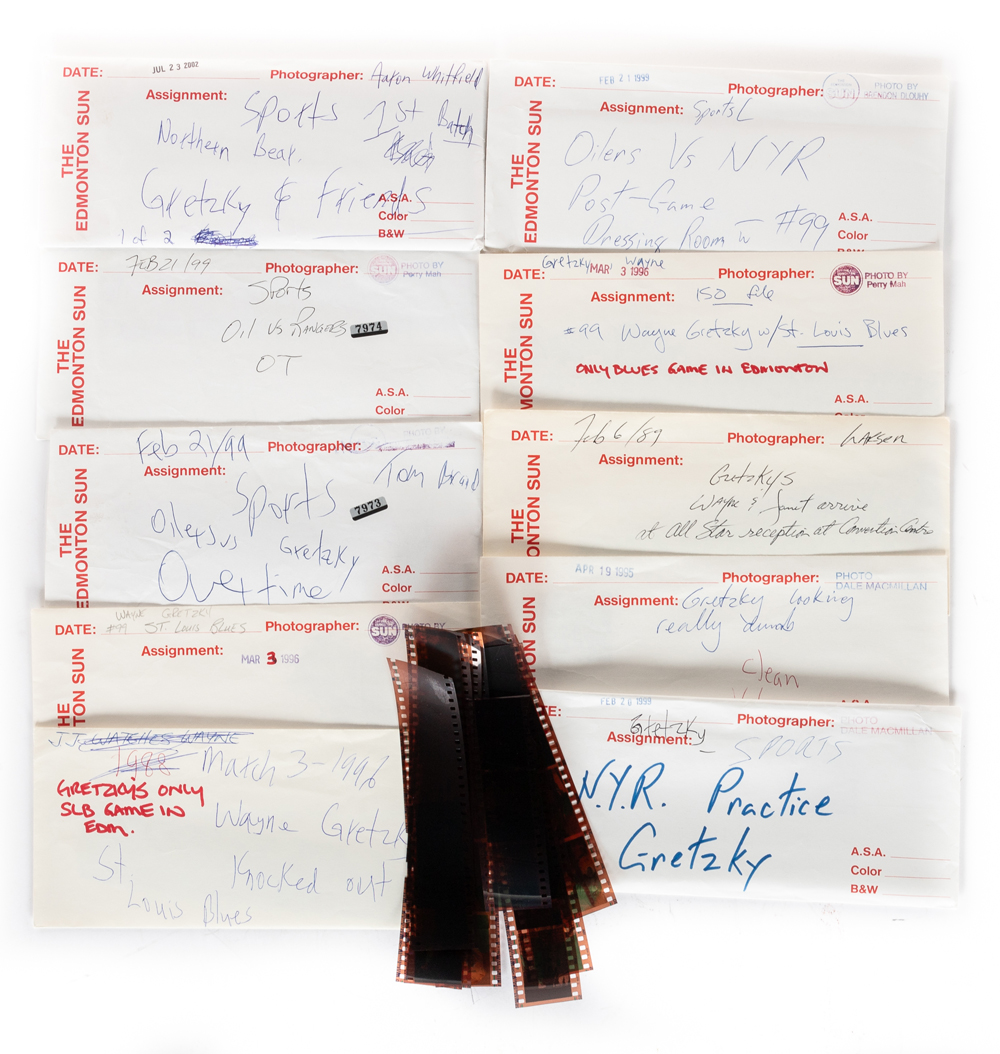 THE
EDMONTON SUN
DATE: JUL 23 2002 Photographer: Aaron Whitfield
Assignment: Sports 1st Batch
Northern Bear
Gretzky & Friends
1 of 2
A.S.A.
Color
B&W
THE
EDMONTON SUN
DATE: FEB 21 1999 Photographer: SUN PHOTO BY
BRENDON DLOUHY
Assignment: Sports
Oilers Vs NYR
Post-Game
Dressing Room w #99
A.S.A.
Color
B&W
THE
EDMONTON SUN
DATE: FEB 21/99 SUN PHOTO BY
Perry Mah
Assignment: Sports
Oil vs Rangers 7974
OT
A.S.A.
Color
THE
MONTON SUN
Gretzky, Wayne
DATE: MAR 3 1996 Photographer: SUN PHOTO BY
Perry Mah
Assignment: ISO file
#99 Wayne Gretzky w/St. Louis Blues
ONLY BLUES GAME IN EDMONTON
A.S.A.
THE
EDMONTON SUN
DATE: Feb 21/99 Photographer: PHOTO BY
Tom Braid
Assignment: Sports
7973
Oilers vs Gretzky
Overtime
A.S.A.
Color
THE
DMONTON SUN
DATE: Feb 6/89 Photographer: Larsen
Assignment:
Gretzky's
Wayne & Janet arrive
at All Star reception at Convention Centre
HE
EDMONTON SUN
WAYNE GRETZKY
DATE: #99 ST. LOUIS BLUES Photographer: SUN PHOTO BY
Assignment:
MAR 3 1996
ON SUN
DATE: APR 19 1995 Photographer: PHOTO
DALE MACMILLAN
Assignment: Gretzky looking
really dumb
clean
J.J. WATCHES WAYNE
1988 March 3-1996
GRETZKY'S ONLY
SLB GAME IN
EDM.
Wayne Gretzk
Knocked out
St.
Louis Blues
FEB 20 1999 Photographer: PHOTO
DALE MACMILLAN
Gretzky
Assignment: - SPORTS
N.Y.R. Practice
Gretzky
A.S.A.
Color
B&W